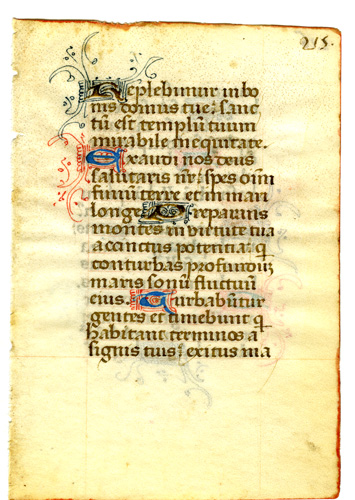 215.
Replebimur in bo
nis domus tue: sanc
tū est templū tuum
mirabile in equitate.
Exaudi nos deus
salutaris nr̄e: spes oīm
finiū terre et in mari
longe. Preparans
montes in virtute tua
accinctus potencia: q̄
conturbas profundū
maris sonū fluctuū
eius. Turbabūtur
gentes et timebunt q̄
habitant terminos a
signis tuis: exitus ma